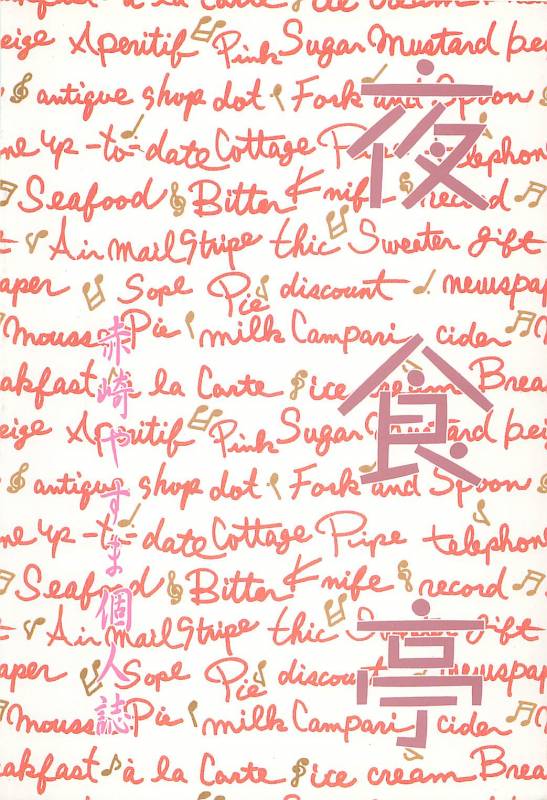 à la Carte ice cream
eige Aperitif Pink Sugar Mustard bei
antique shop dot Fork and Spoon
ne up-to-date Cottage Pipe telephon
Seafood Bitter Knife record
t Air mail Stripe thic Sweater gift
aper Sope Pie discount newspap
Mouss Pie milk Campari cider
akfast à la Carte ice cream Brea
eige Aperitif Pink Sugar Mustard bei
antique shop dot Fork and Spoon
ne up-to-date Cottage Pipe telephon
Seafood Bitter Knife record
t Air mail Stripe thic Sweater gift
aper Sope Pie discount newspap
Mouss Pie milk Campari cider
akfast à la Carte ice cream Brea
夜食亭
赤崎やすま個人誌